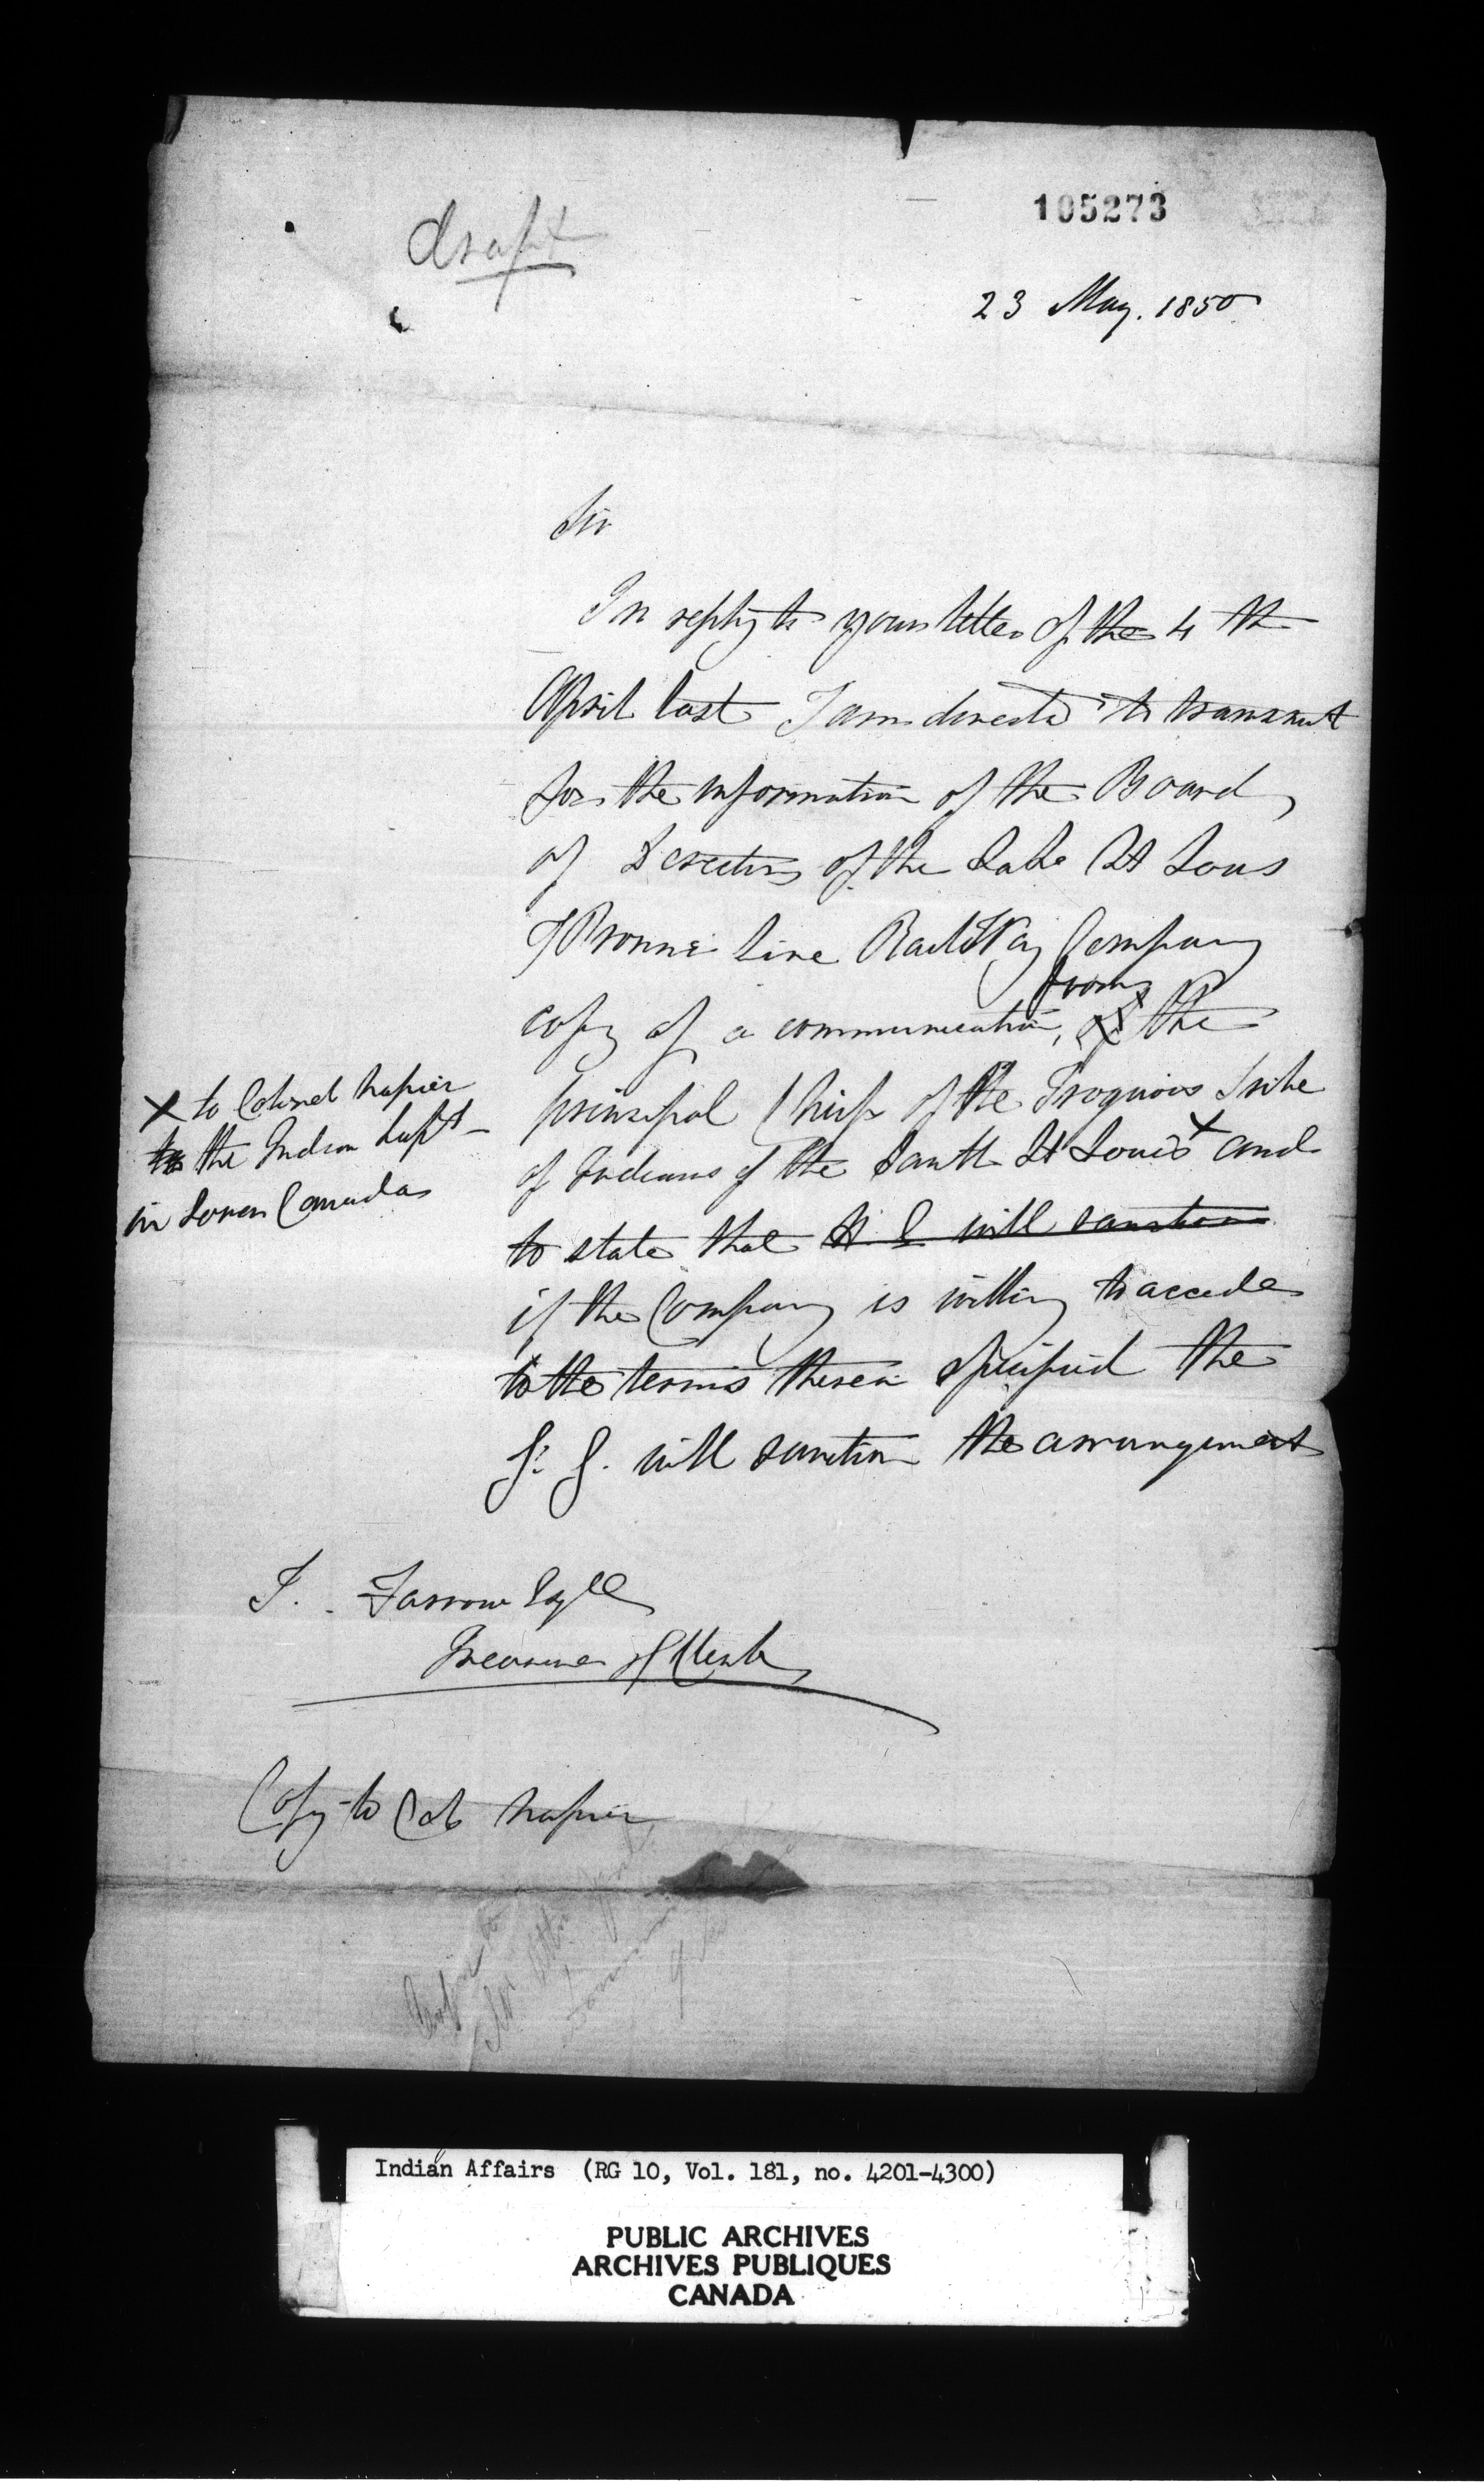 105273
draft
23 May. 1850
Sir
In reply to your letter of the 4 th
April last I am directed to transmit
for the information of the Board
of Directors of the Lake St Louis
& Province line Rail Way Company
copy of a communication, from
of the
principal Chiefs of the Iroquois Tribe
of Indians of the Sault St Louis X and
X to Colonel Napier
to the Indian Dept
in Lower Canada
to state that H E will sanction
if the Company is willing to accede
to the terms therein specified the
G. G. will sanction the arrangement
T. Farrow Esqre
Treasurer & Clerk
Copy to Col Napier
Indian Affairs (RG 10, Vol. 181, no. 4201-4300)
PUBLIC ARCHIVES
ARCHIVES PUBLIQUES
CANADA